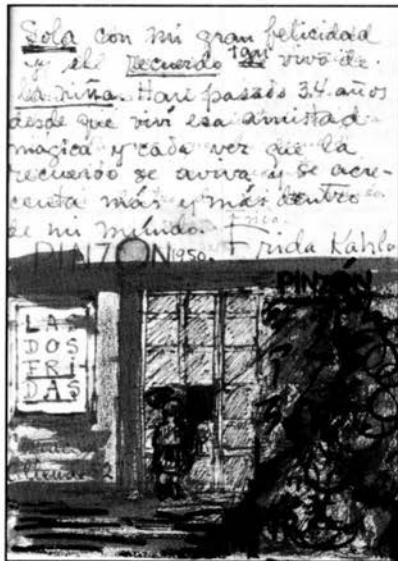 Sola con mi gran felicidad
y el recuerdo tan vivo de
la niña. Han pasado 34 años
desde que viví esa amistad
magica y cada vez que la
recuerdo se aviva y se acre-
centa más y más dentro
de mi mundo.
PINZÓN 1950. Frida Kahlo
PINZÓN
LAS
DOS
FRI
DAS